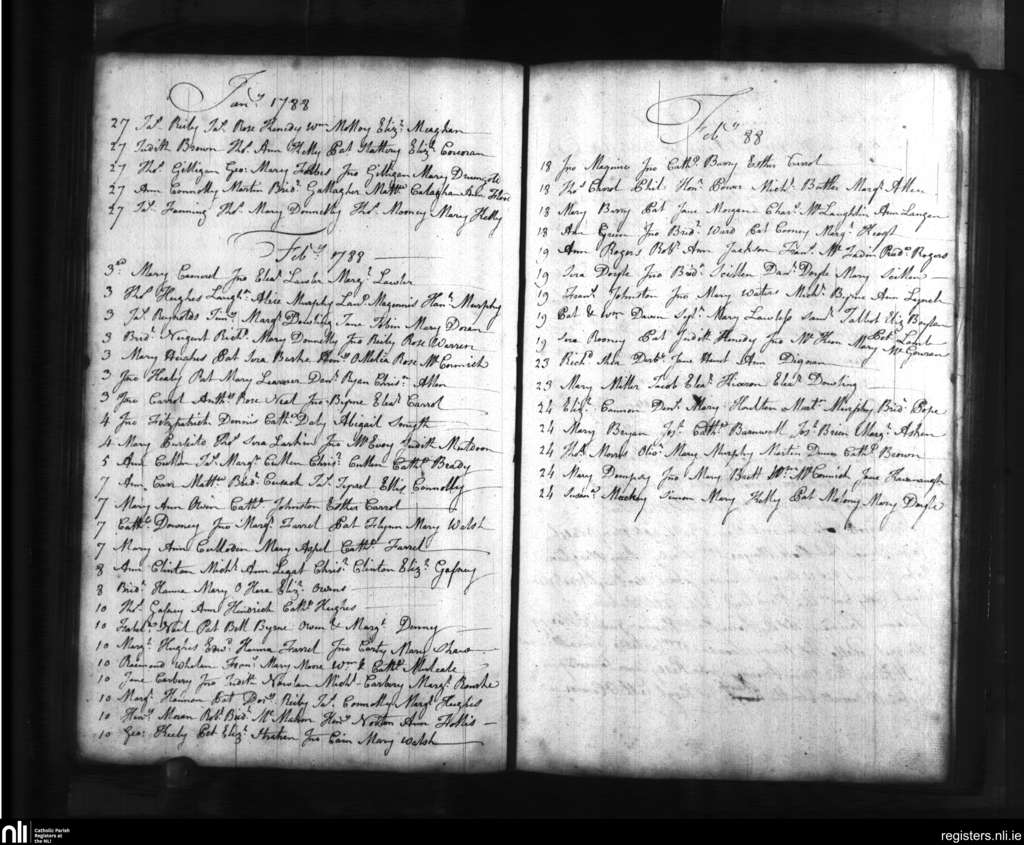 Jan.y 1788
27 Ja.s Reily Ja.s Rose Kenedy W.m McKoy Eliz.h Meaghan
27 Judith Brown Tho.s Ann Kelly Pat Slattery Eliz.h Corcoran
27 Tho.s Gilligan Geo: Mary Forbes Jno Gilligan Mary
27 Ann Connolly Martin Brid.t Gallagher Matt.w Calaghan Ann
27 Ja.s Fanning Tho.s Mary Donnelly Tho.s Mooney Mary Kelly
Feb.y 1788
3.d Mary Jno Elea.r Lawler Marg.t Lawler
3 Tho.s Hughes Laugh.n Alice Murphy Magennis Han.h Murphy
3 Ja.s Reynolds Tim.y Marg.t Dowling Jane Tobin Mary Doran
3 Brid.t Nugent Rich.d Mary Donnelly Jno Reily Rose Warren
3 Mary Hughes Pat Sera O Melia Rose McCormick
3 Jno Healy Pat Mary Dan.l Ryan Chris.n Allen
3 Jno Carrol Anth.y Rose Neal Jno Byrne Elea.r Carrol
4 Jno Fitzpatrick Dennis Cath.e Daly Abigail Smyth
4 Mary Tho.s Sera Larkin Jno McEvoy Judith Muldoon
5 Ann Cullen Ja.s Marg.t Cullen Chris.r Cullen Cath.e Brady
7 Ann Carr Matt.w Brid.t Cusack Ja.s Tyrrel Ellis Connolly
7 Mary Ann Owen Cath.e Johnston Esther Carrol
7 Cath.e Downey Jno Marg.t Farrel Pat Flynn Mary Walsh
7 Mary Ann Mary Aspel Cath.e Farrel
8 Ann Clinton Mich.l Ann Legat Chris.r Clinton Eliz.h Gafney
8 Brid.t Hanna Mary O Hara Eliz.h Owens
10 Tho.s Gafney Ann Kendrick Cath.e Hughes
10 Neil Pat Byrne Owen & Marg.t
10 Marg.t Hughes Edw.d Hanna Farrel Jno Carty Mary Shaw
10 Raimond Whelan Fran.s Mary Moore W.m & Cath.e
10 Jane Carbery Jno Judith Nowlan Mich.l Carbery Marg.t Rourke
10 Marg.t Hannon Pat Reily Ja.s Connolly Marg.t Hughes
10 Hen.y Moran Rob.t Brid.t McMahon Hen.y Norton Ann Hollis
10 Geo: Pat Eliz.h Jno Cain Mary Walsh
Feb.y 88
18 Jno Maguire Jno Cath.e Barry Esther Carrol
18 Tho.s Carrol Phil: Hon.r Power Mich.l Butler Marg.t
18 Mary Barry Pat Jane Morgan Cha.s McLaughlin Ann Langan
18 Ann Green Jno Brid.t Ward Pat Marg.t Keogh
19 Ann Rogers Rob.t Ann Jackson Fran.s Brid.t Rogers
19 Sera Doyle Jno Brid.t Dan.l Doyle Mary
19 Fran.s Johnston Jno Mary Waters Mich.l Byrne Ann Lynch
19 Pat & W.m Mary Lawless Sam.l Talbot Eliz. Boylan
Pat Lamb
19 Sera Rooney Pat Judith Hendy Jno Mary McGouran
23 Rich.d Darby Jane Ann Digman
23 Mary Miller Elea.r Elea.r Dowling
24 Eliz.h Cannon Dan.l Mary Matt.w Murphy Brid.t Pope
24 Mary Bryan Jos.h Cath.e Barnwell Jos.h Breen Marg.t
24 Tho.s Morris Oliv.r Mary Murphy Martin Cath.e Brown
24 Mary Dempsey Jno Mary Brett W.m McCormick Jane Kavanagh
24 Susan.a Mackey Simon Mary Kelly Pat Molony Mary Doyle
nli
Catholic Parish
Registers at
the NLI
registers.nli.ie